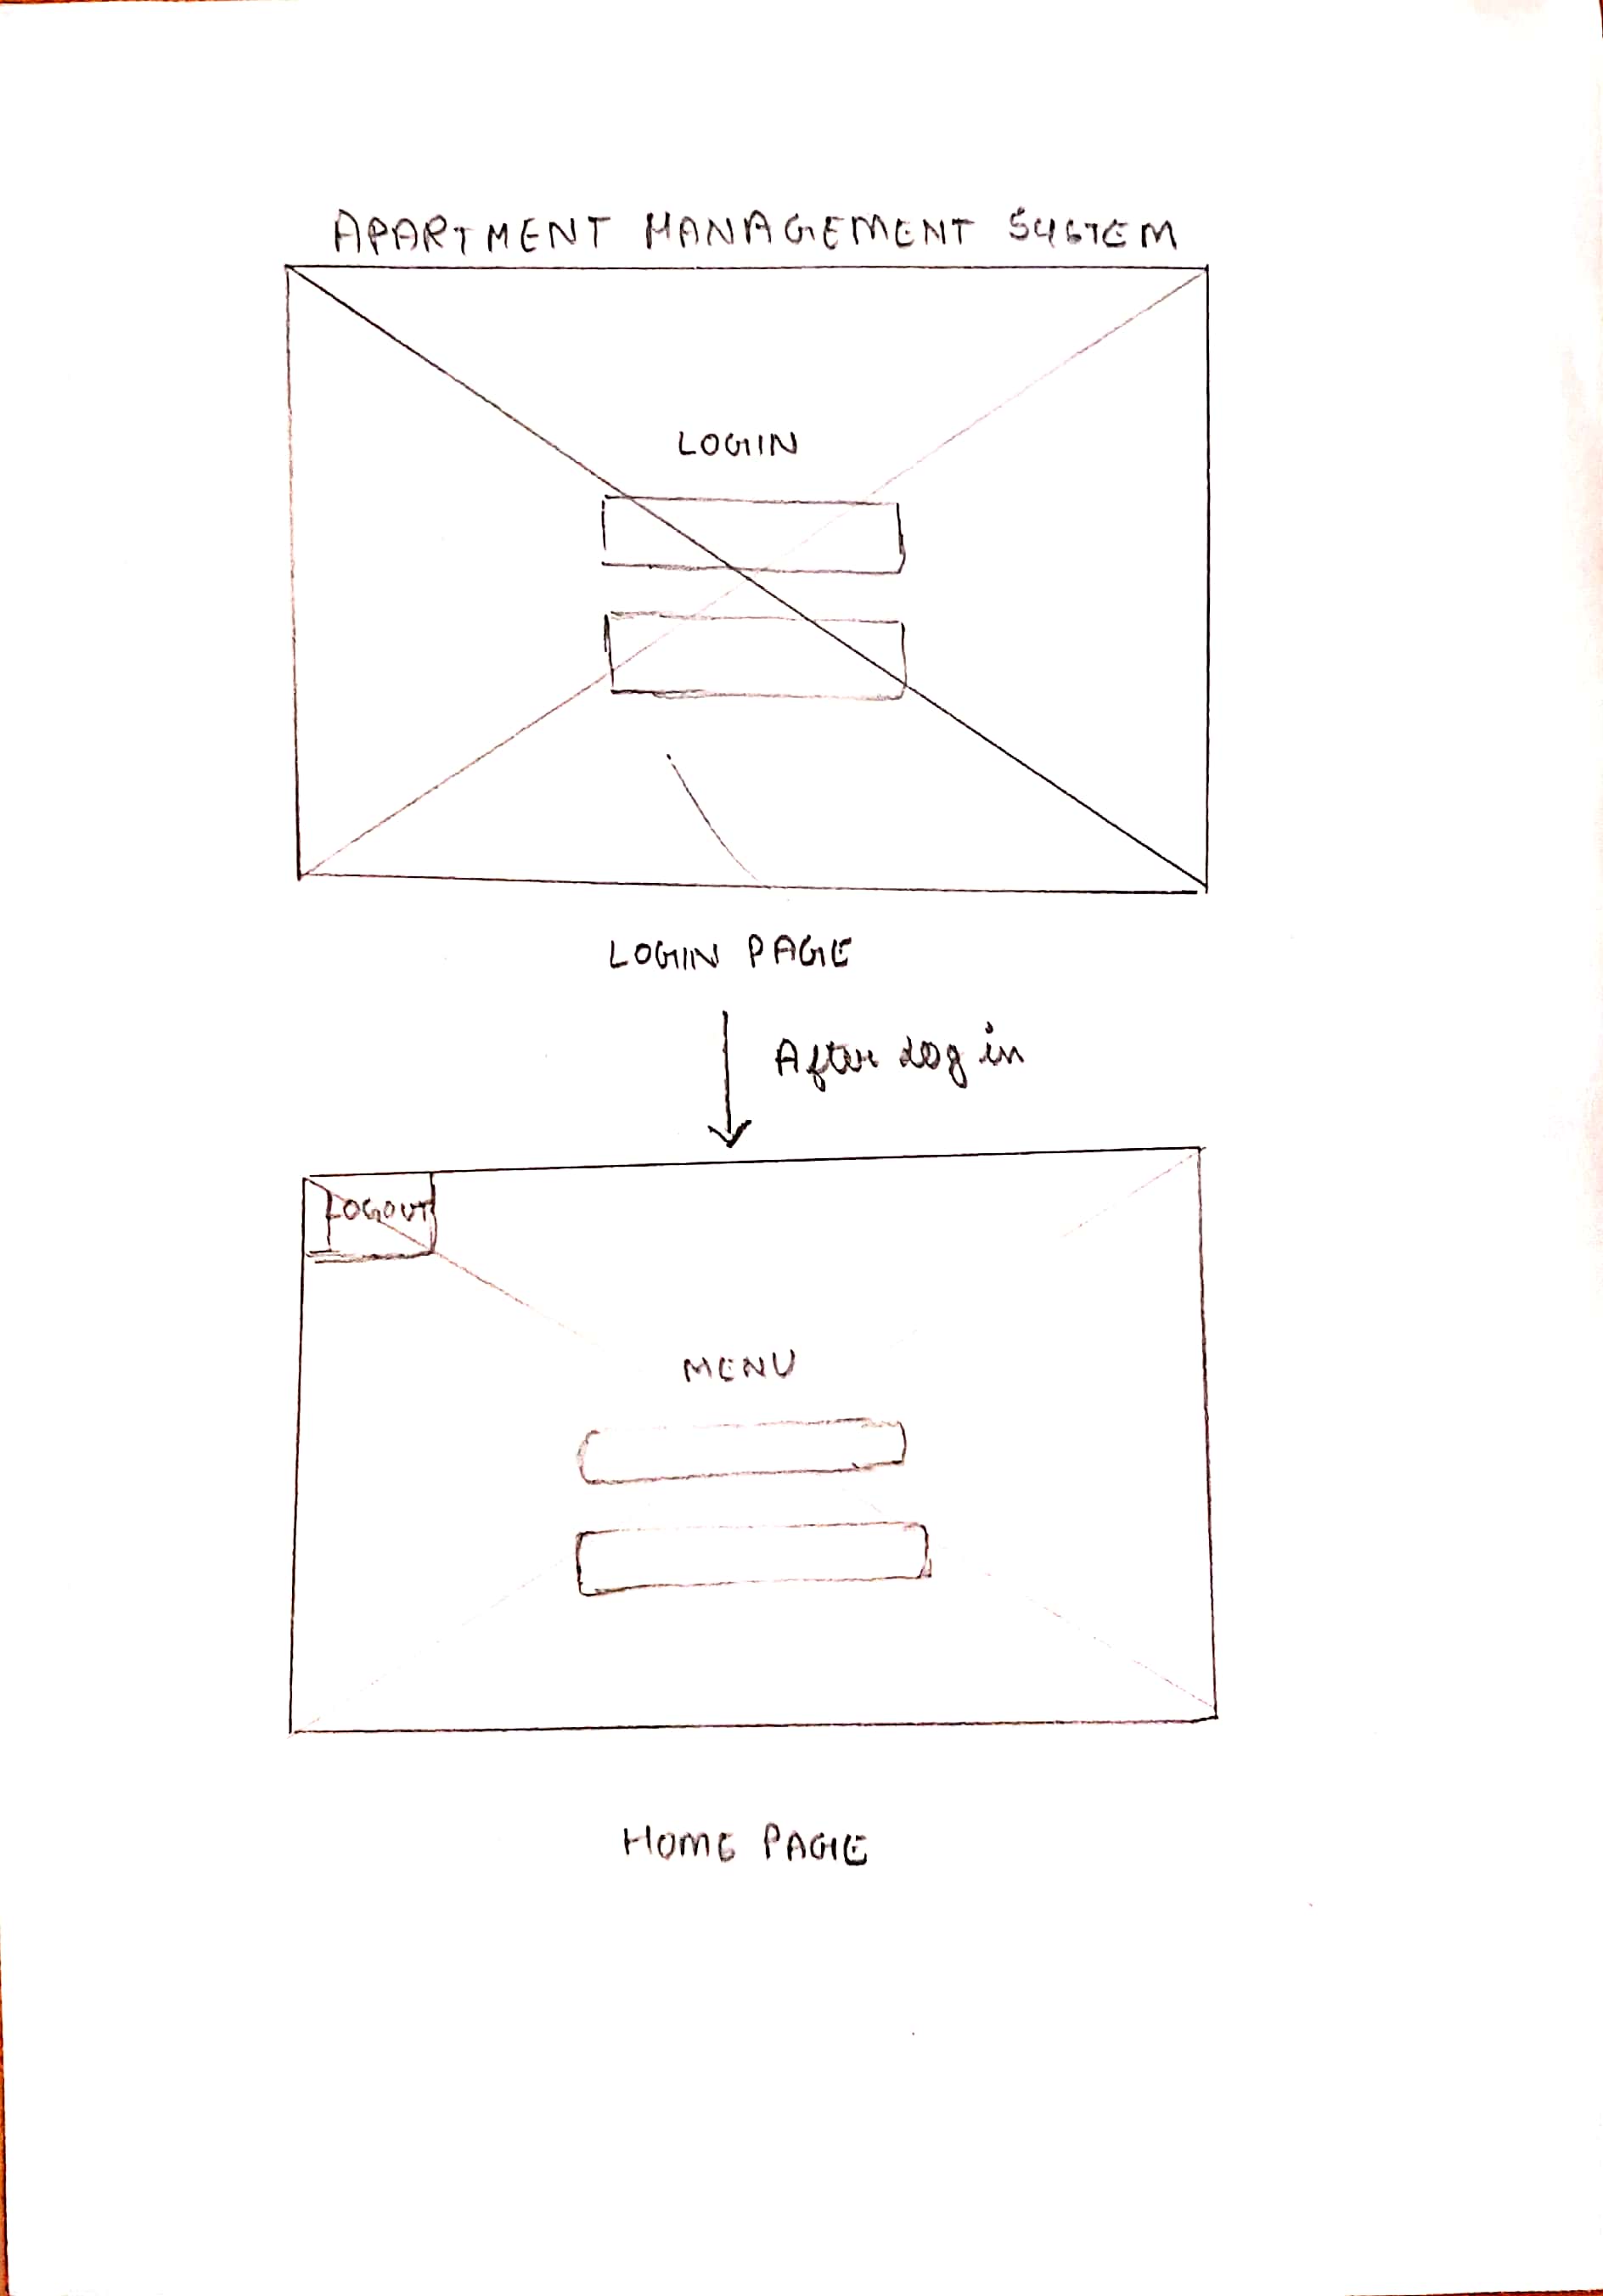 APARTMENT MANAGEMENT SYSTEM
LOGIN
LOGIN PAGE
After Log in
LOGOUT
MENU
HOME PAGE